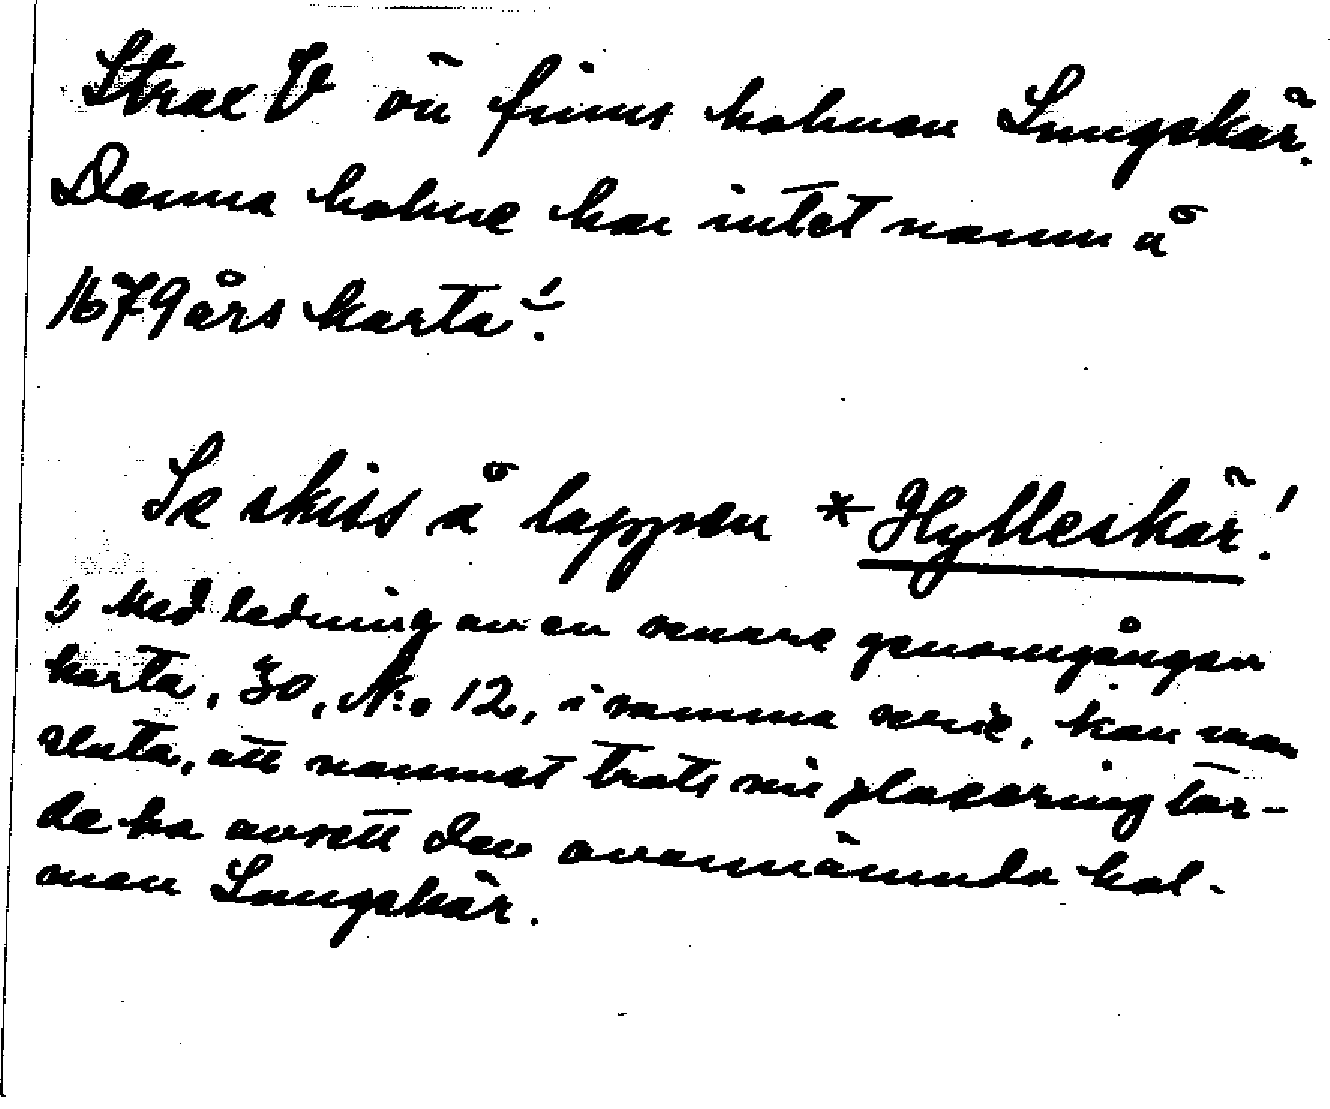 Strax V ön finns holmen Lungskär.
Denna holme har intet namn å
1679 års karta !
Se skiss å lappen * Hylleskär!
1) Med ledning av en senare genomgången
karta, 30, N:o 12, i samma serie, kan man
sluta, att namnet trots sin placering tor-
de ha avsett den ovannämnda hol-
men Lungskär.